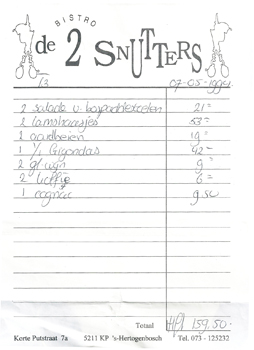 BISTRO
de 2 SNUTTERS
13 07-05-1994
2 salade v. 21=
2 lamshaasjes 53=
2 aardbeien 19=
1 1/1 Gigondas 42=
2 gl wijn 9=
2 koffie 6=
1 cognac 9.50
Totaal Hfl 159,50.
Korte Putstraat 7a 5211 KP 's-Hertogenbosch Tel. 073 - 125232